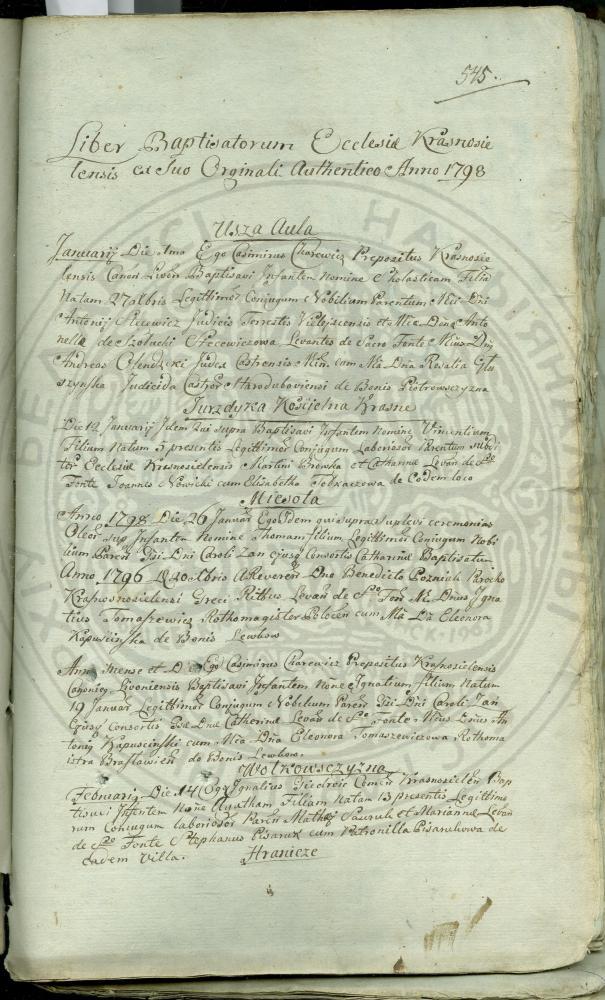 545.
Liber Baptisatorum Ecclesiæ Krasnosie
lensis ex suo Orginali Authentico Anno 1798
Usza Aula
Januarij Die 1ma Ego Casimirus Charewicz Prepositus Krasnosie
lensis Canon Livon Baptisavi Infantem Nomine Scholasticam Filiã
Natam 27 Xbris Legittimor Conjugum Nobilium Parentum Mci Dni
Antonij Judicis Terrestis Vilejscensis et Mcæ Dnæ Anto
nellæ de Szolucki Levantes de Sacro Fonte Mcus Dns
Andreas Judex Castrensis Min. cum Mca Dna Rosalia Głu
szynska Judicida Castror Starodubowiensi de Bonis Piotrowsczyzna
Jurzdyka Kościelna Krasne
Die 12 Januarij Idem Qui supra Baptisavi Infantem Nomine Vincentium
Filium Natum 5 presentis Legittimor Conjugum Laboriosor Parentum subdi
tor Ecclesiæ Krasnosielensis Martini et Catharinæ Levan de Sro
Fonte Joannis Nowicki cum Elisabetha Tobkaczowa de Eodem loco
Miesota
Anno 1798 Die 26 Januar Ego Idem qui supra suplevi ceremonias
Oleor sup Infantem Nomine Thomam filium Legittimor Conjugum Nobi
lium Paren Gsi Dni Caroli Zan ejusq Consortis Catharinæ Baptisatum
Anno 1796 D 20 Xbris A Reveren Dno Benedicto Pozniak Parocho
Krasnosielensi Greci Ritus Levan de So Fon M Dnus Igna
tius Tomaszewicz Rothomagister Połocen cum Mca Da Eleonora
Kapuscinska de Bonis Lewkow
Ann Mense et D Ego Casimirus Charewicz Prepositus Krasnosielensis
Canonicq Livoniensis Baptisavi Infantem None Ignatium filium Natum
19 Januar Legittimor Conjugum Nobilium Paren Gsi Dni Caroli Zan
Ejusq Consortis Gsæ Dnæ Catherinæ Levan de So Fonte. Mcus Dnus An
tonig Kapuscinski cum Mca Dna Eleonora Tomaszewiczowa Rothoma
istra Brasławien de Bonis Lewkow.
Wołkowsczyzna
Februarij Die 14 Ego Ignatius Giedroic Comen Krasnosielen Bap
tisavi Infantem None Agatham Filiam Natam 13 presentis Legittimo
rum Conjugum laboriosor Paren Mathej et Mariannæ Levan
de Sro Fonte Stephanus Pisaruk cum Petronilla Pisarukowa de
Eadem Villa.
Hranicze